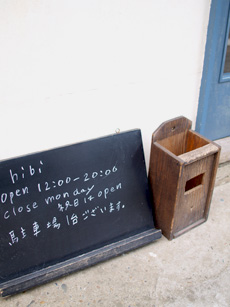 hibi
open 12:00-20:00
close monday
祝日はopen
駐車場1台ございます。